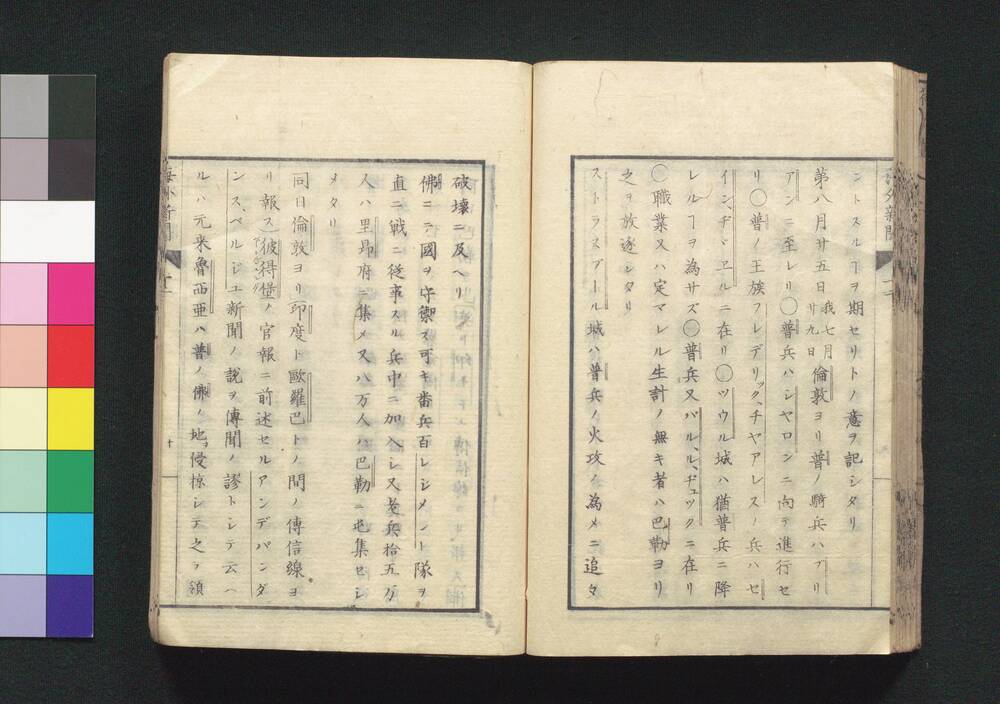 海外新聞
ントスルヿヲ期セリトノ意ヲ記シタリ
第八月廿五日我七月廿九日倫敦ヨリ普ノ騎兵ハブリ
アンニ至レリ〇普兵ハシヤロンニ向テ進行セ
リ〇普ノ王族フレデリックチヤアレスノ兵ハセ
インヂヾヱールニ在リ〇ツウル城ハ猶普兵ニ降
レルヿヲ為サズ〇普兵又バルルヂュックニ在リ
〇職業又ハ定マレル生計ノ無キ者ハ巴勒ヨリ
之ヲ放逐シタリ
ストラスブール城ハ普兵ノ火攻ノ為メニ追々
破壊ニ及ヘリ
佛ニテ國ヲ守禦ス可キ番兵百レシメント隊ヲ
直ニ戦ニ従事スル兵中ニ加入シ又兵拾五万
人ハ里昻府ニ集メ又八万人ハ巴勒ニ屯集セシ
メタリ
同日倫敦ヨリ印度ト歐羅巴トノ間ノ傳信線ヨ
リ報ス彼得堡ノ官報ニ前述セルアンデパンダ
ンスベルジユ新聞ノ説ヲ傳聞ノ謬トシテ云ハ
ルハ元来魯西亜ハ普ノ佛ノ地ヲ侵掠シテ之ヲ領
海外新聞
十